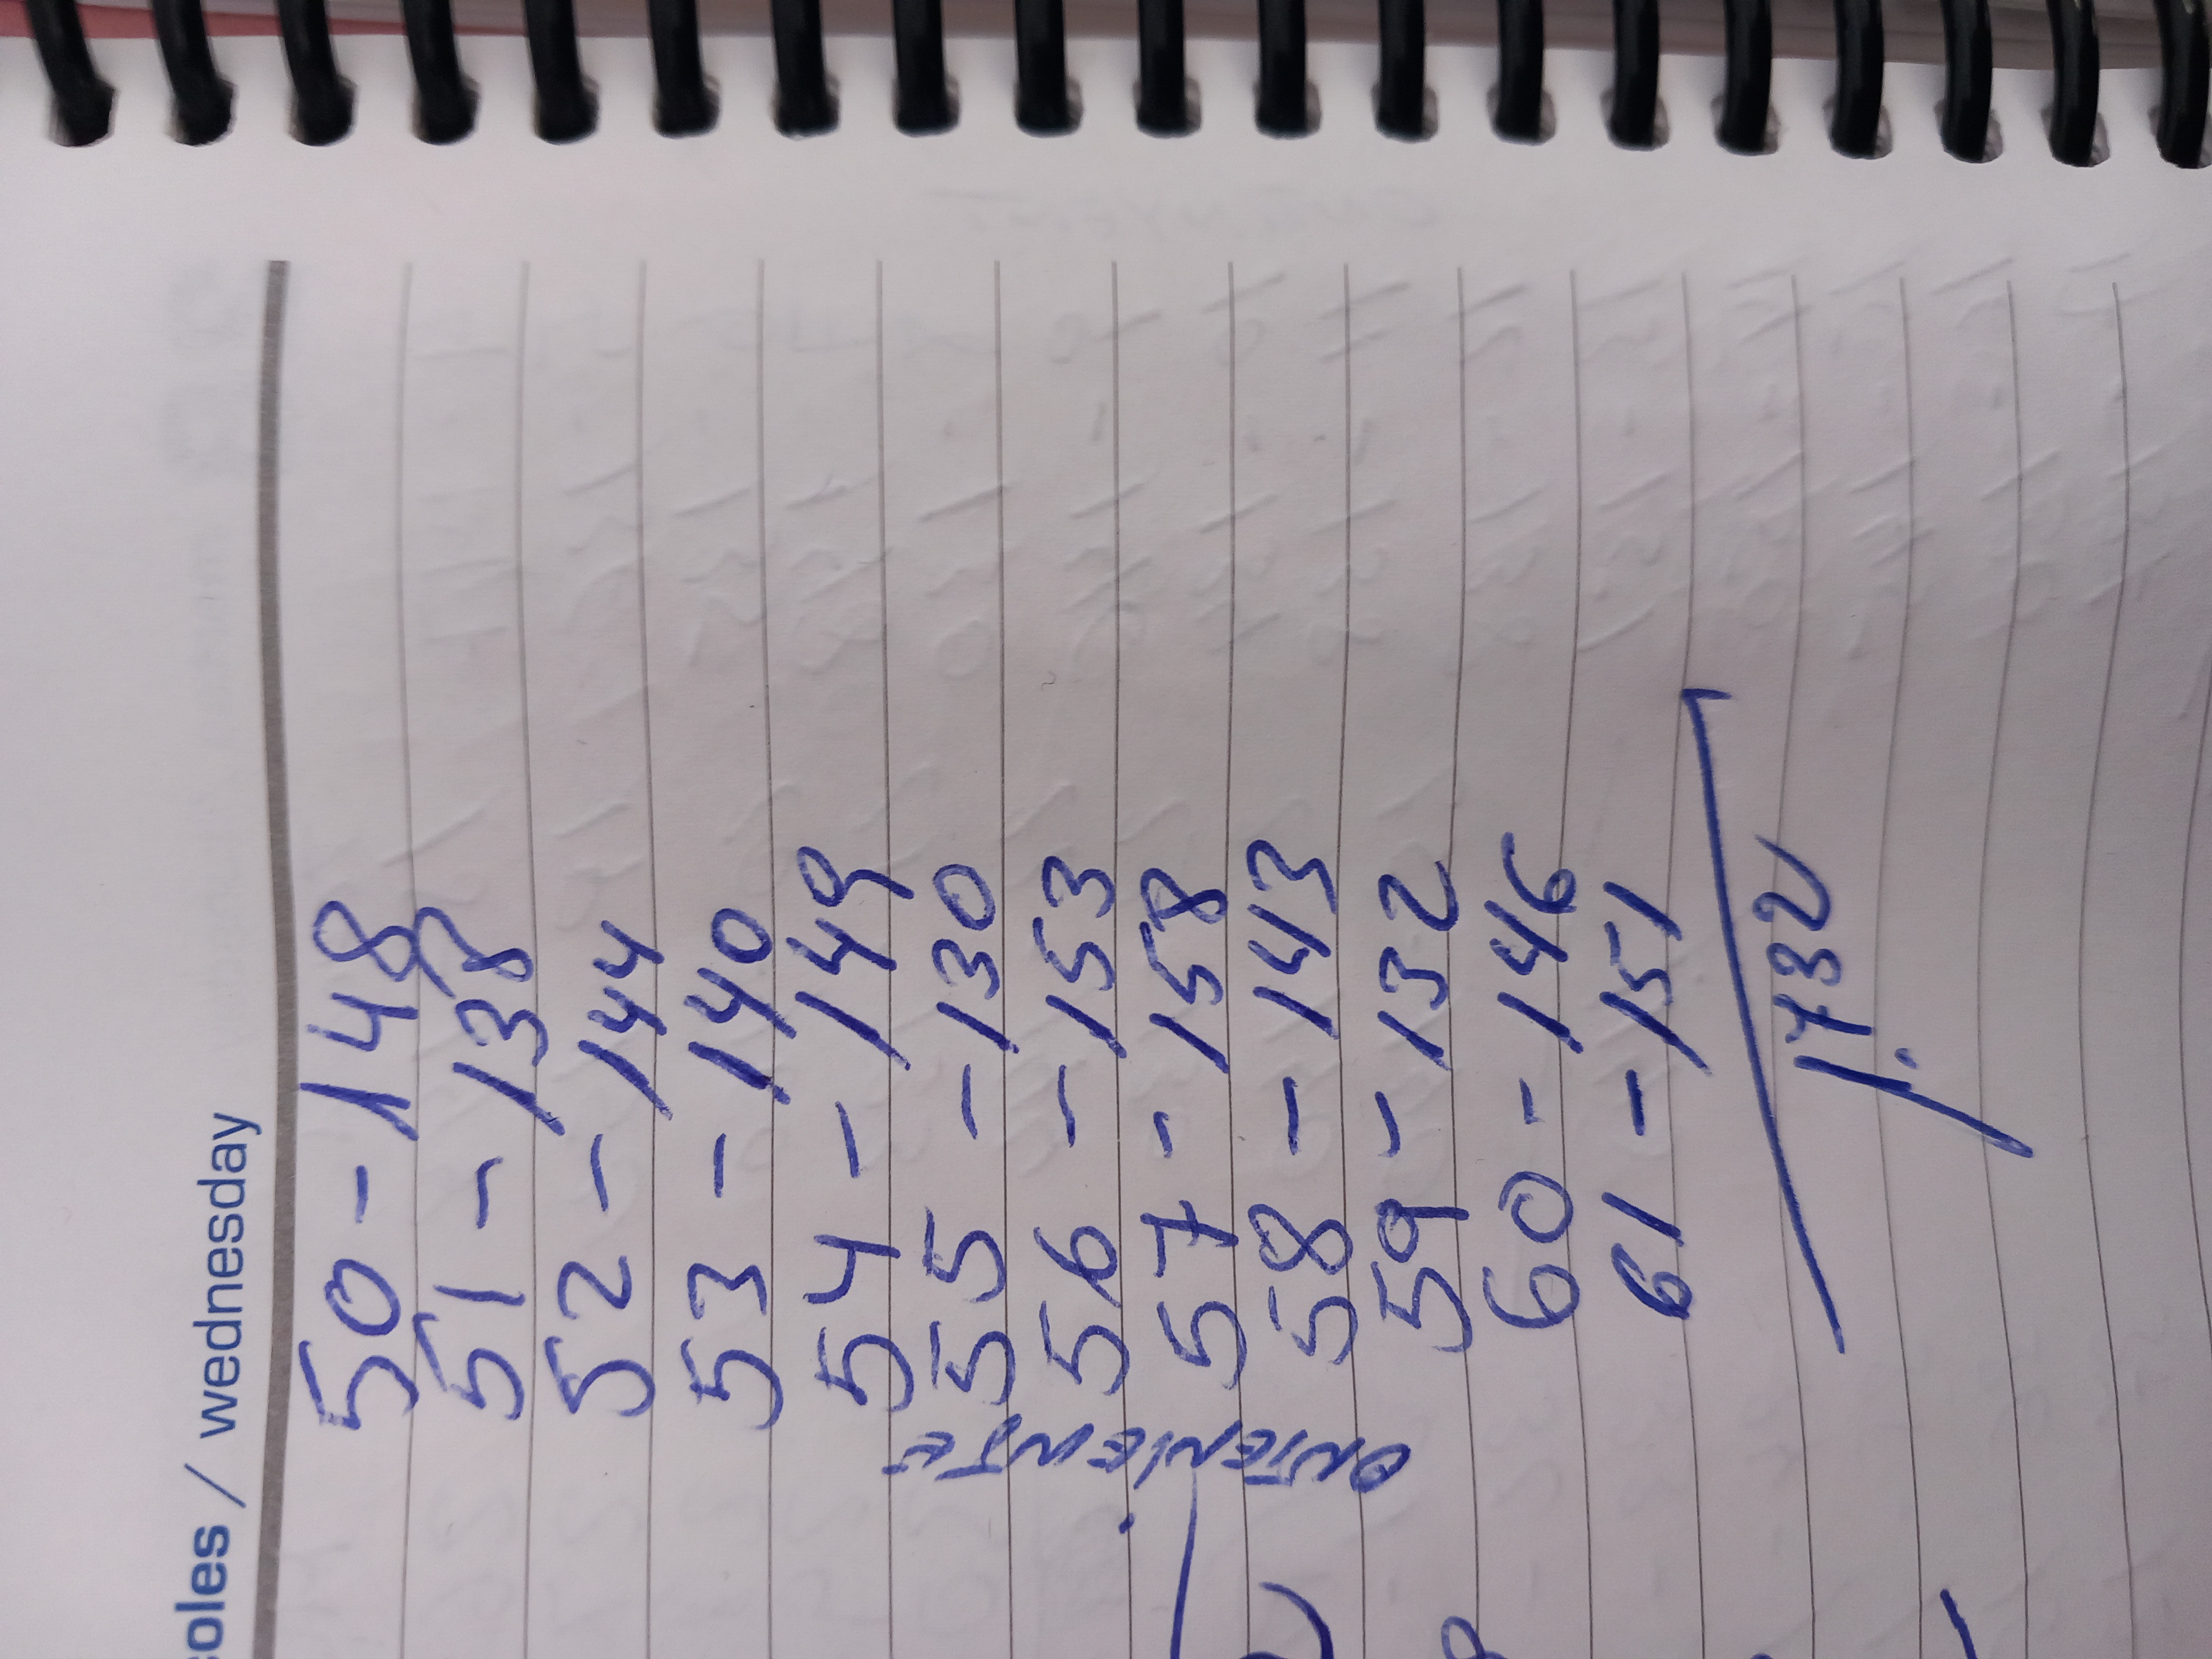 coles / wednesday
50 - 148
51 - 138
52 - 144
53 - 140
54 - 149
55 - 130
56 - 153
57 - 158
58 - 143
59 - 132
60 - 146
61 - 151
1.732
ONTENIENTE